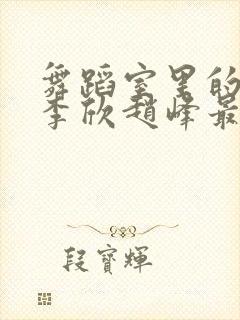 舞蹈室里的
李欣趙峰最
段寶輝